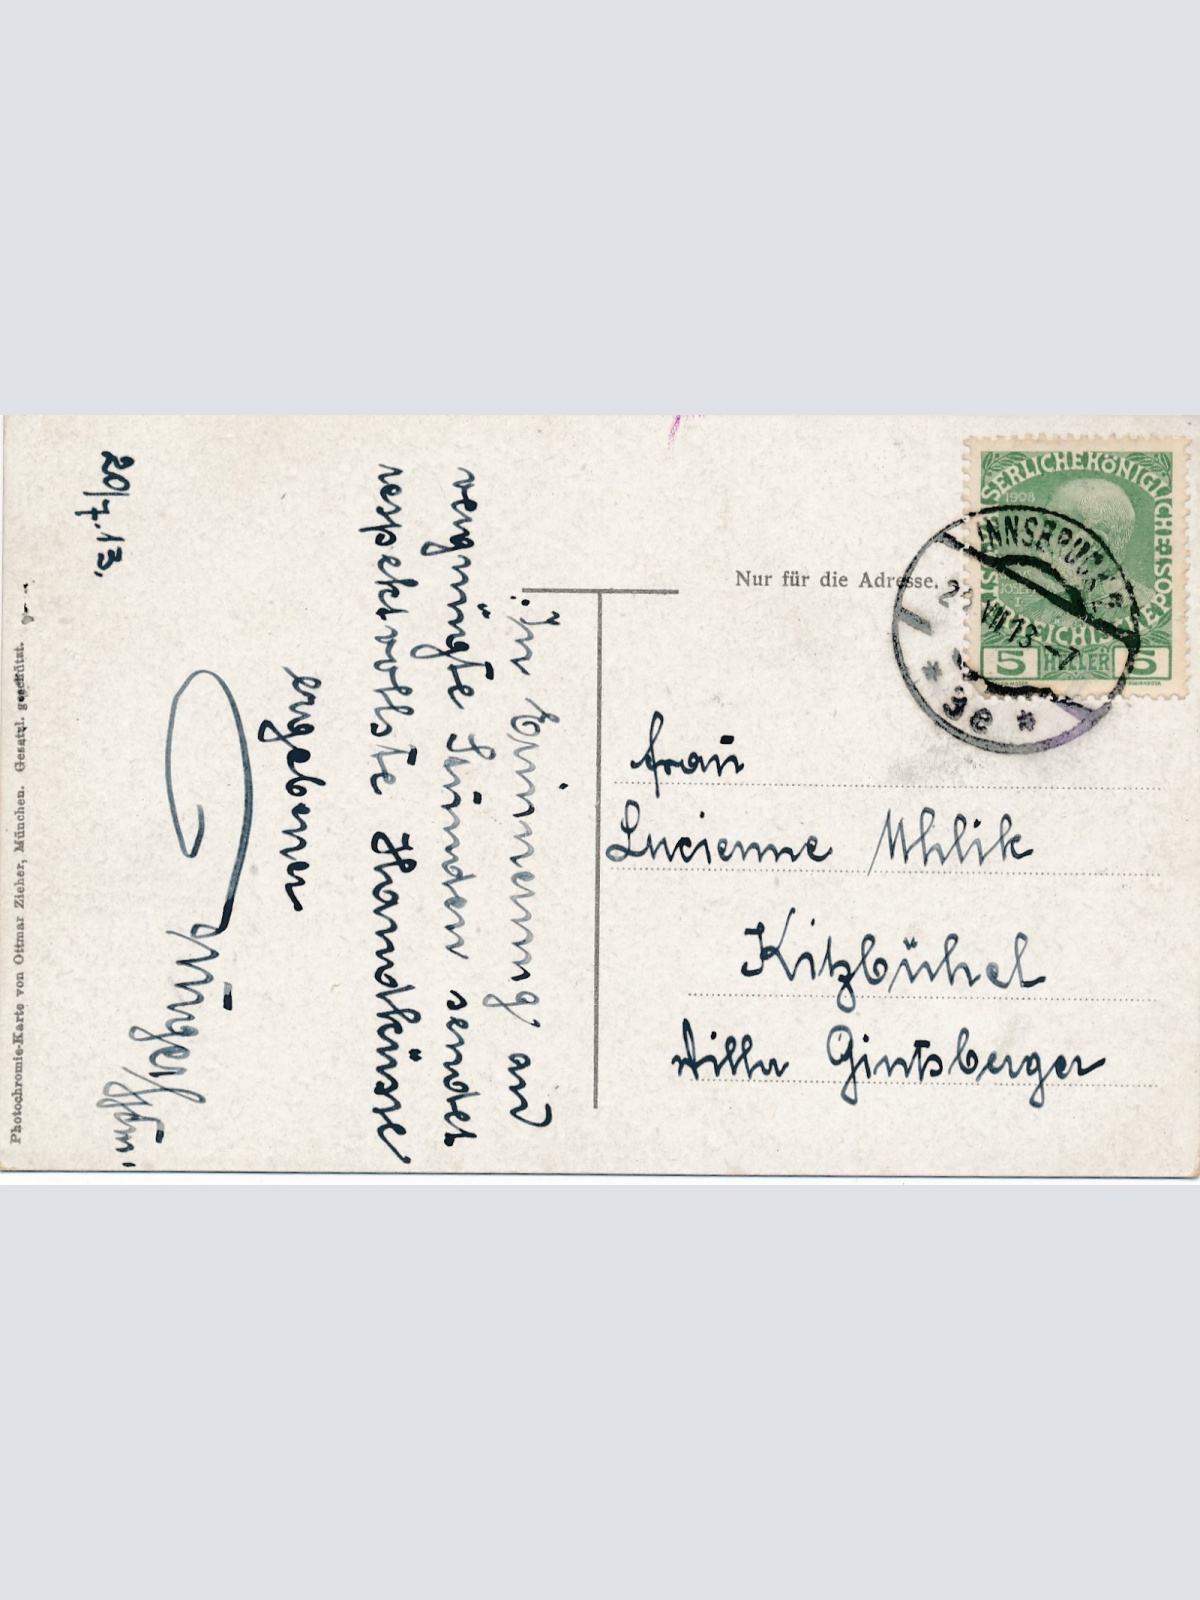 20/7.13.
In Erinnerung an
vergnügte Stunden sendet
respektvollste Handküsse
ergebener
Photochromie-Karte von Ottmar Zieher, München. Gesetzl. geschützt.
Nur für die Adresse.
SERLICHEKÖNIGLICHE
ÖSTERREICHISCHEPOST
1908
5 HELLER 5
INNSBRUCK 2
VII 13 -7
* 3e *
Frau
Lucienne Uhlik
Kitzbühel
Villa Gintsberger